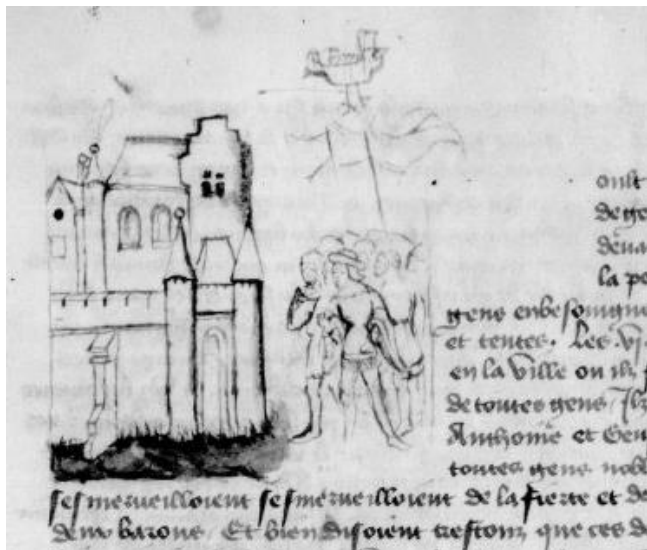 oult
de ge
deua
la po
gens enbesoingne
et tentes. Les vi
en la ville ou ilz
de toutes gens
Anthoine et
toutes gens nobl
ses merueilloient ses merueilloient de la fierte et de
deux barons. Et bien disoient trestous que ces d